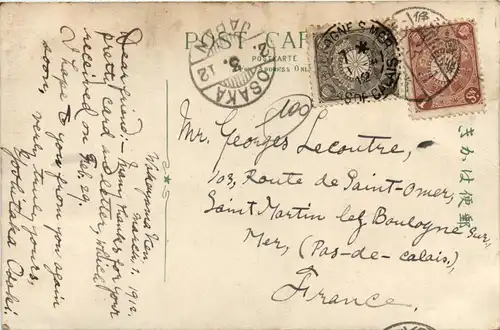 POST CARD
POSTCARTE
Address Only
OSAKA
JAPAN
3.12
BOULOGNE S MER
PAS DE CALAIS
きかは便郵
(100)
Mr. Georges Lecoutre,
103, Route de Saint-Omer,
Saint Martin lez Boulogne Sur
Mer, (Pas-de-calais.)
France.
Wakayama Ken
March, 1, 1912.
Dear friend:- Many thanks for your
pretty card and letter, which
received on Feb. 29.
I hope to yours from you again
soon,
very truly yours,
Yoshitaka Osaki.